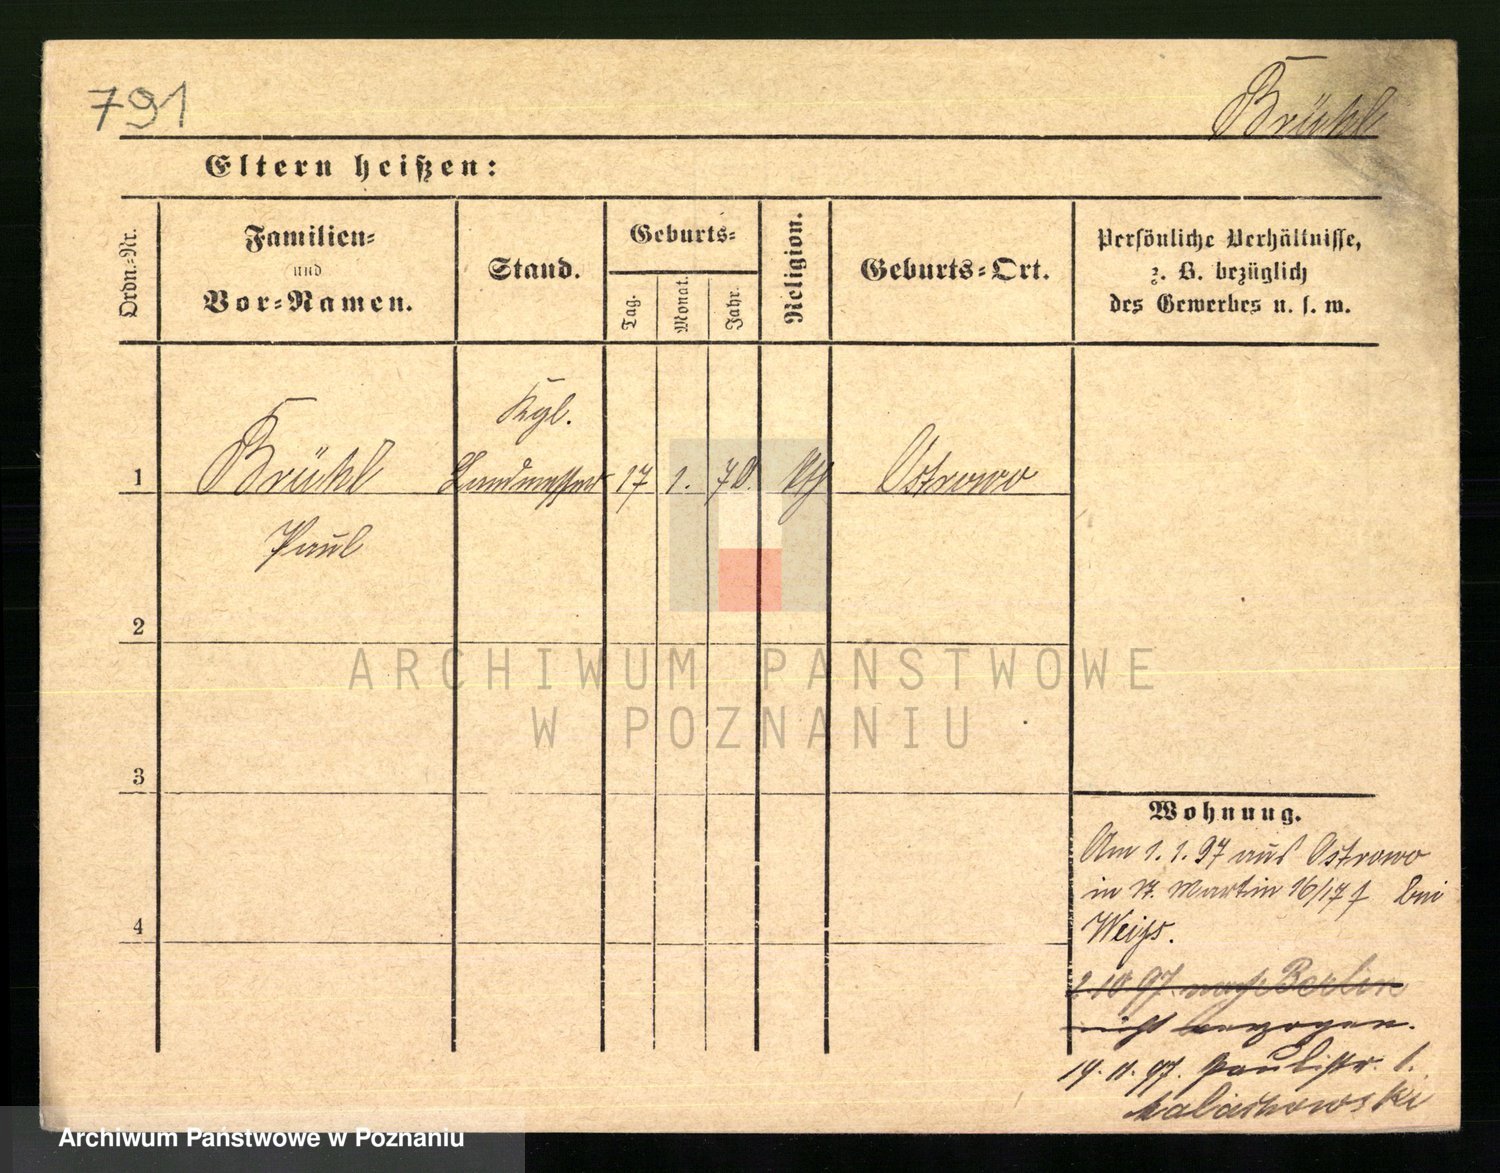 791
Brühl
Eltern heißen:
Ordn.-Nr.
Familien-
und
Vor-Namen.
Stand.
Geburts-
Tag.
Monat.
Jahr.
Religion.
Geburts-Ort.
Persönliche Verhältnisse,
z. B. bezüglich
des Gewerbes u. s. w.
Kgl.
1 Brühl Landmesser 17 1. 70. kth Ostrowo
Paul
2
3
4
Wohnung.
Am 1. 1. 97 aus Ostrowo
in St. Martin 16/17 bei
Weiss.
2. 10 97. nach Berlin
nicht verzogen.
19. 11. 97. Paulistr. 1.
ARCHIWUM PAŃSTWOWE
W POZNANIU
Archiwum Państwowe w Poznaniu